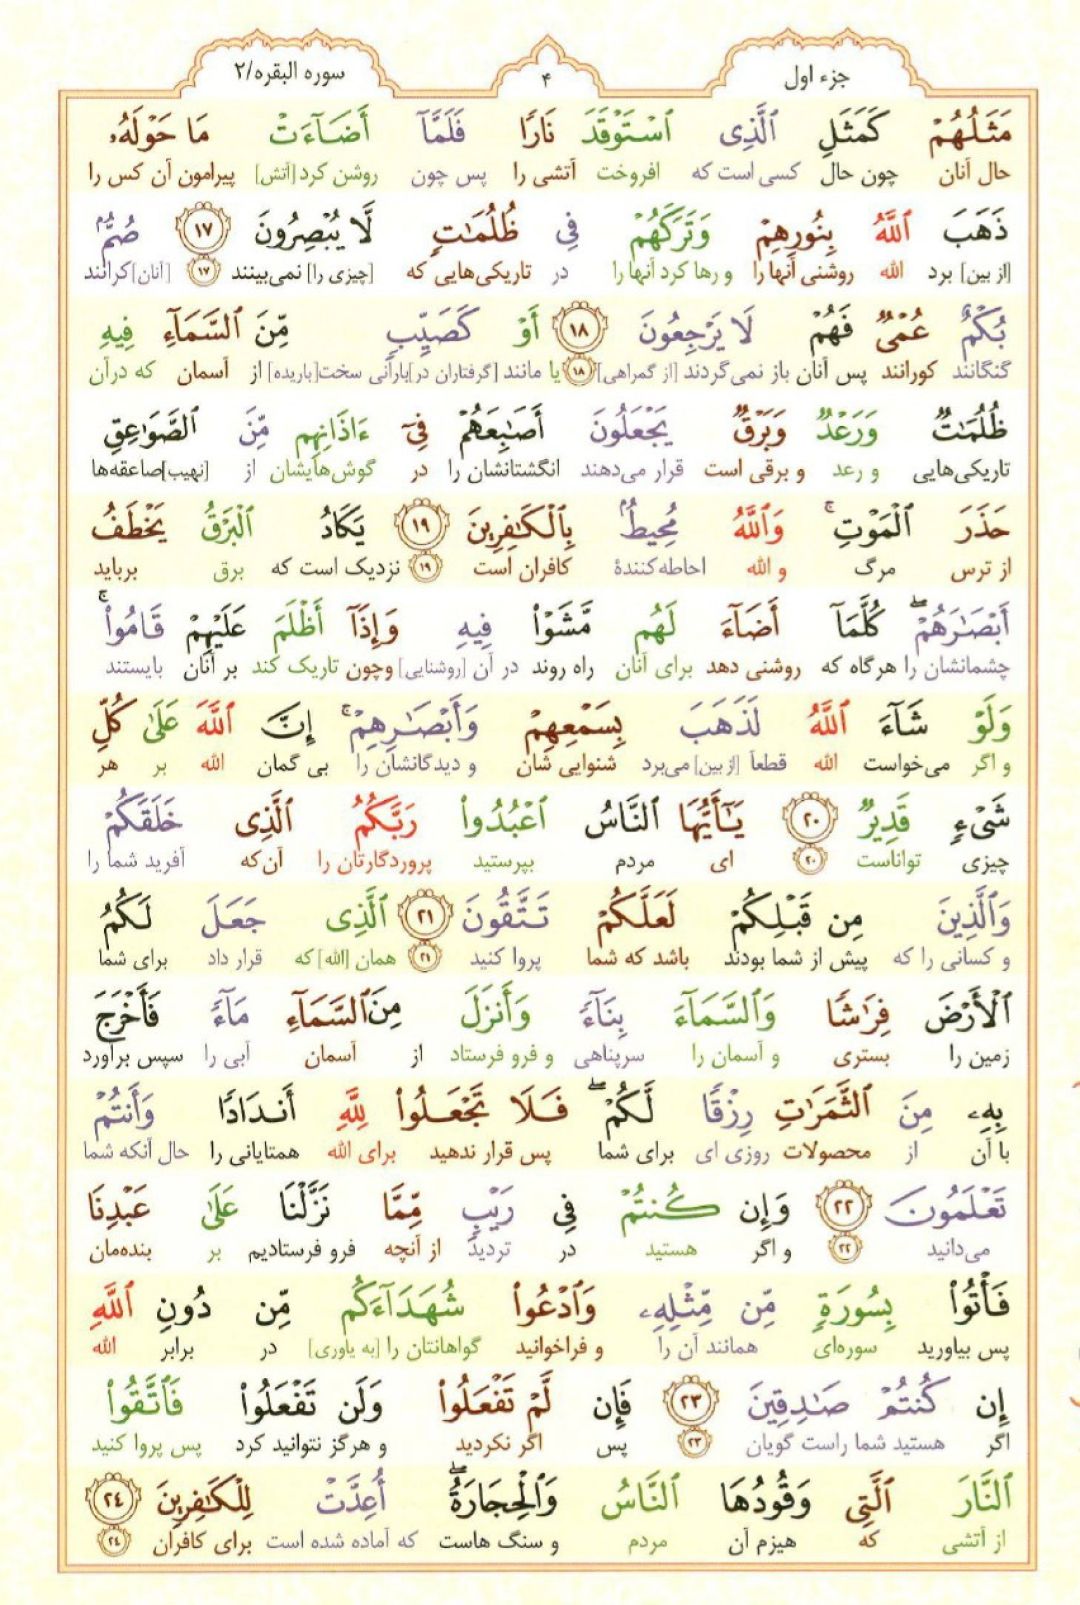 جزء اول
۴
سوره البقره/۲
مَثَلُهُمْ كَمَثَلِ ٱلَّذِى ٱسْتَوْقَدَ نَارًا فَلَمَّآ أَضَآءَتْ مَا حَوْلَهُۥ
حال آنان چون حال کسی است که افروخت آتشی را پس چون روشن کرد [آتش] پیرامون آن کس را
ذَهَبَ ٱللَّهُ بِنُورِهِمْ وَتَرَكَهُمْ فِى ظُلُمَٰتٍ لَّا يُبْصِرُونَ ١٧ صُمٌّۢ
[از بین] برد الله روشنی آنها را و رها کرد آنها را در تاریکی‌هایی که [چیزی را] نمی‌بینند ۱۷ [آنان] کرانند
بُكْمٌ عُمْىٌ فَهُمْ لَا يَرْجِعُونَ ١٨ أَوْ كَصَيِّبٍ مِّنَ ٱلسَّمَآءِ فِيهِ
گنگانند کورانند پس آنان باز نمی‌گردند [از گمراهی] ۱۸ یا مانند [گرفتاران در] بارانی سخت [باریده] از آسمان که در آن
ظُلُمَٰتٌ وَرَعْدٌ وَبَرْقٌ يَجْعَلُونَ أَصَٰبِعَهُمْ فِىٓ ءَاذَانِهِم مِّنَ ٱلصَّوَٰعِقِ
تاریکی‌هایی و رعد و برقی است قرار می‌دهند انگشتانشان را در گوش‌هایشان از [نهیب] صاعقه‌ها
حَذَرَ ٱلْمَوْتِ ۚ وَٱللَّهُ مُحِيطٌۢ بِٱلْكَٰفِرِينَ ١٩ يَكَادُ ٱلْبَرْقُ يَخْطَفُ
از ترس مرگ و الله احاطه‌کنندهٔ کافران است ۱۹ نزدیک است که برق برباید
أَبْصَٰرَهُمْ ۖ كُلَّمَآ أَضَآءَ لَهُم مَّشَوْا۟ فِيهِ وَإِذَآ أَظْلَمَ عَلَيْهِمْ قَامُوا۟ ۚ
چشمانشان را هرگاه که روشنی دهد برای آنان راه روند در آن [روشنایی] وچون تاریک کند بر آنان بایستند
وَلَوْ شَآءَ ٱللَّهُ لَذَهَبَ بِسَمْعِهِمْ وَأَبْصَٰرِهِمْ ۚ إِنَّ ٱللَّهَ عَلَىٰ كُلِّ
و اگر می‌خواست الله قطعاً [از بین] می‌برد شنوایی شان و دیدگانشان را بی گمان الله بر هر
شَىْءٍ قَدِيرٌ ٢٠ يَٰٓأَيُّهَا ٱلنَّاسُ ٱعْبُدُوا۟ رَبَّكُمُ ٱلَّذِى خَلَقَكُمْ
چیزی تواناست ۲۰ ای مردم بپرستید پروردگارتان را آن‌که آفرید شما را
وَٱلَّذِينَ مِن قَبْلِكُمْ لَعَلَّكُمْ تَتَّقُونَ ٢١ ٱلَّذِى جَعَلَ لَكُمُ
و کسانی را که پیش از شما بودند باشد که شما پروا کنید ۲۱ همان [الله] که قرار داد برای شما
ٱلْأَرْضَ فِرَٰشًا وَٱلسَّمَآءَ بِنَآءً وَأَنزَلَ مِنَ ٱلسَّمَآءِ مَآءً فَأَخْرَجَ
زمین را بستری و آسمان را سرپناهی و فرو فرستاد از آسمان آبی را سپس برآورد
بِهِۦ مِنَ ٱلثَّمَرَٰتِ رِزْقًا لَّكُمْ ۖ فَلَا تَجْعَلُوا۟ لِلَّهِ أَندَادًا وَأَنتُمْ
با آن از محصولات روزی ای برای شما پس قرار ندهید برای الله همتایانی را حال آنکه شما
تَعْلَمُونَ ٢٢ وَإِن كُنتُمْ فِى رَيْبٍ مِّمَّا نَزَّلْنَا عَلَىٰ عَبْدِنَا
می‌دانید ۲۲ و اگر هستید در تردید از آنچه فرو فرستادیم بر بنده‌مان
فَأْتُوا۟ بِسُورَةٍ مِّن مِّثْلِهِۦ وَٱدْعُوا۟ شُهَدَآءَكُم مِّن دُونِ ٱللَّهِ
پس بیاورید سوره‌ای همانند آن را و فراخوانید گواهانتان را [به یاوری] در برابر الله
إِن كُنتُمْ صَٰدِقِينَ ٢٣ فَإِن لَّمْ تَفْعَلُوا۟ وَلَن تَفْعَلُوا۟ فَٱتَّقُوا۟
اگر هستید شما راست گویان ۲۳ پس اگر نکردید و هرگز نتوانید کرد پس پروا کنید
ٱلنَّارَ ٱلَّتِى وَقُودُهَا ٱلنَّاسُ وَٱلْحِجَارَةُ ۖ أُعِدَّتْ لِلْكَٰفِرِينَ ٢٤
از آتشی که هیزم آن مردم و سنگ هاست که آماده شده است برای کافران ۲۴